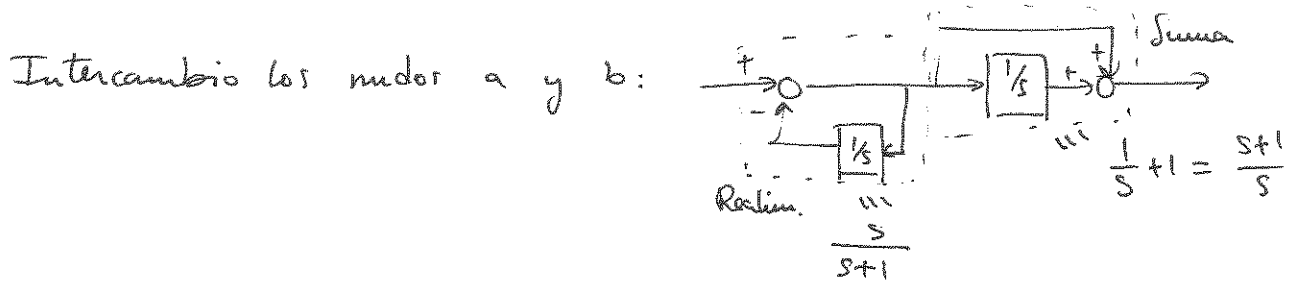 Intercambio los nudos a y b:
+
-
1/s
+
+
Suma
1/s
Realim.
s/(s+1)
1/s + 1 = (s+1)/s